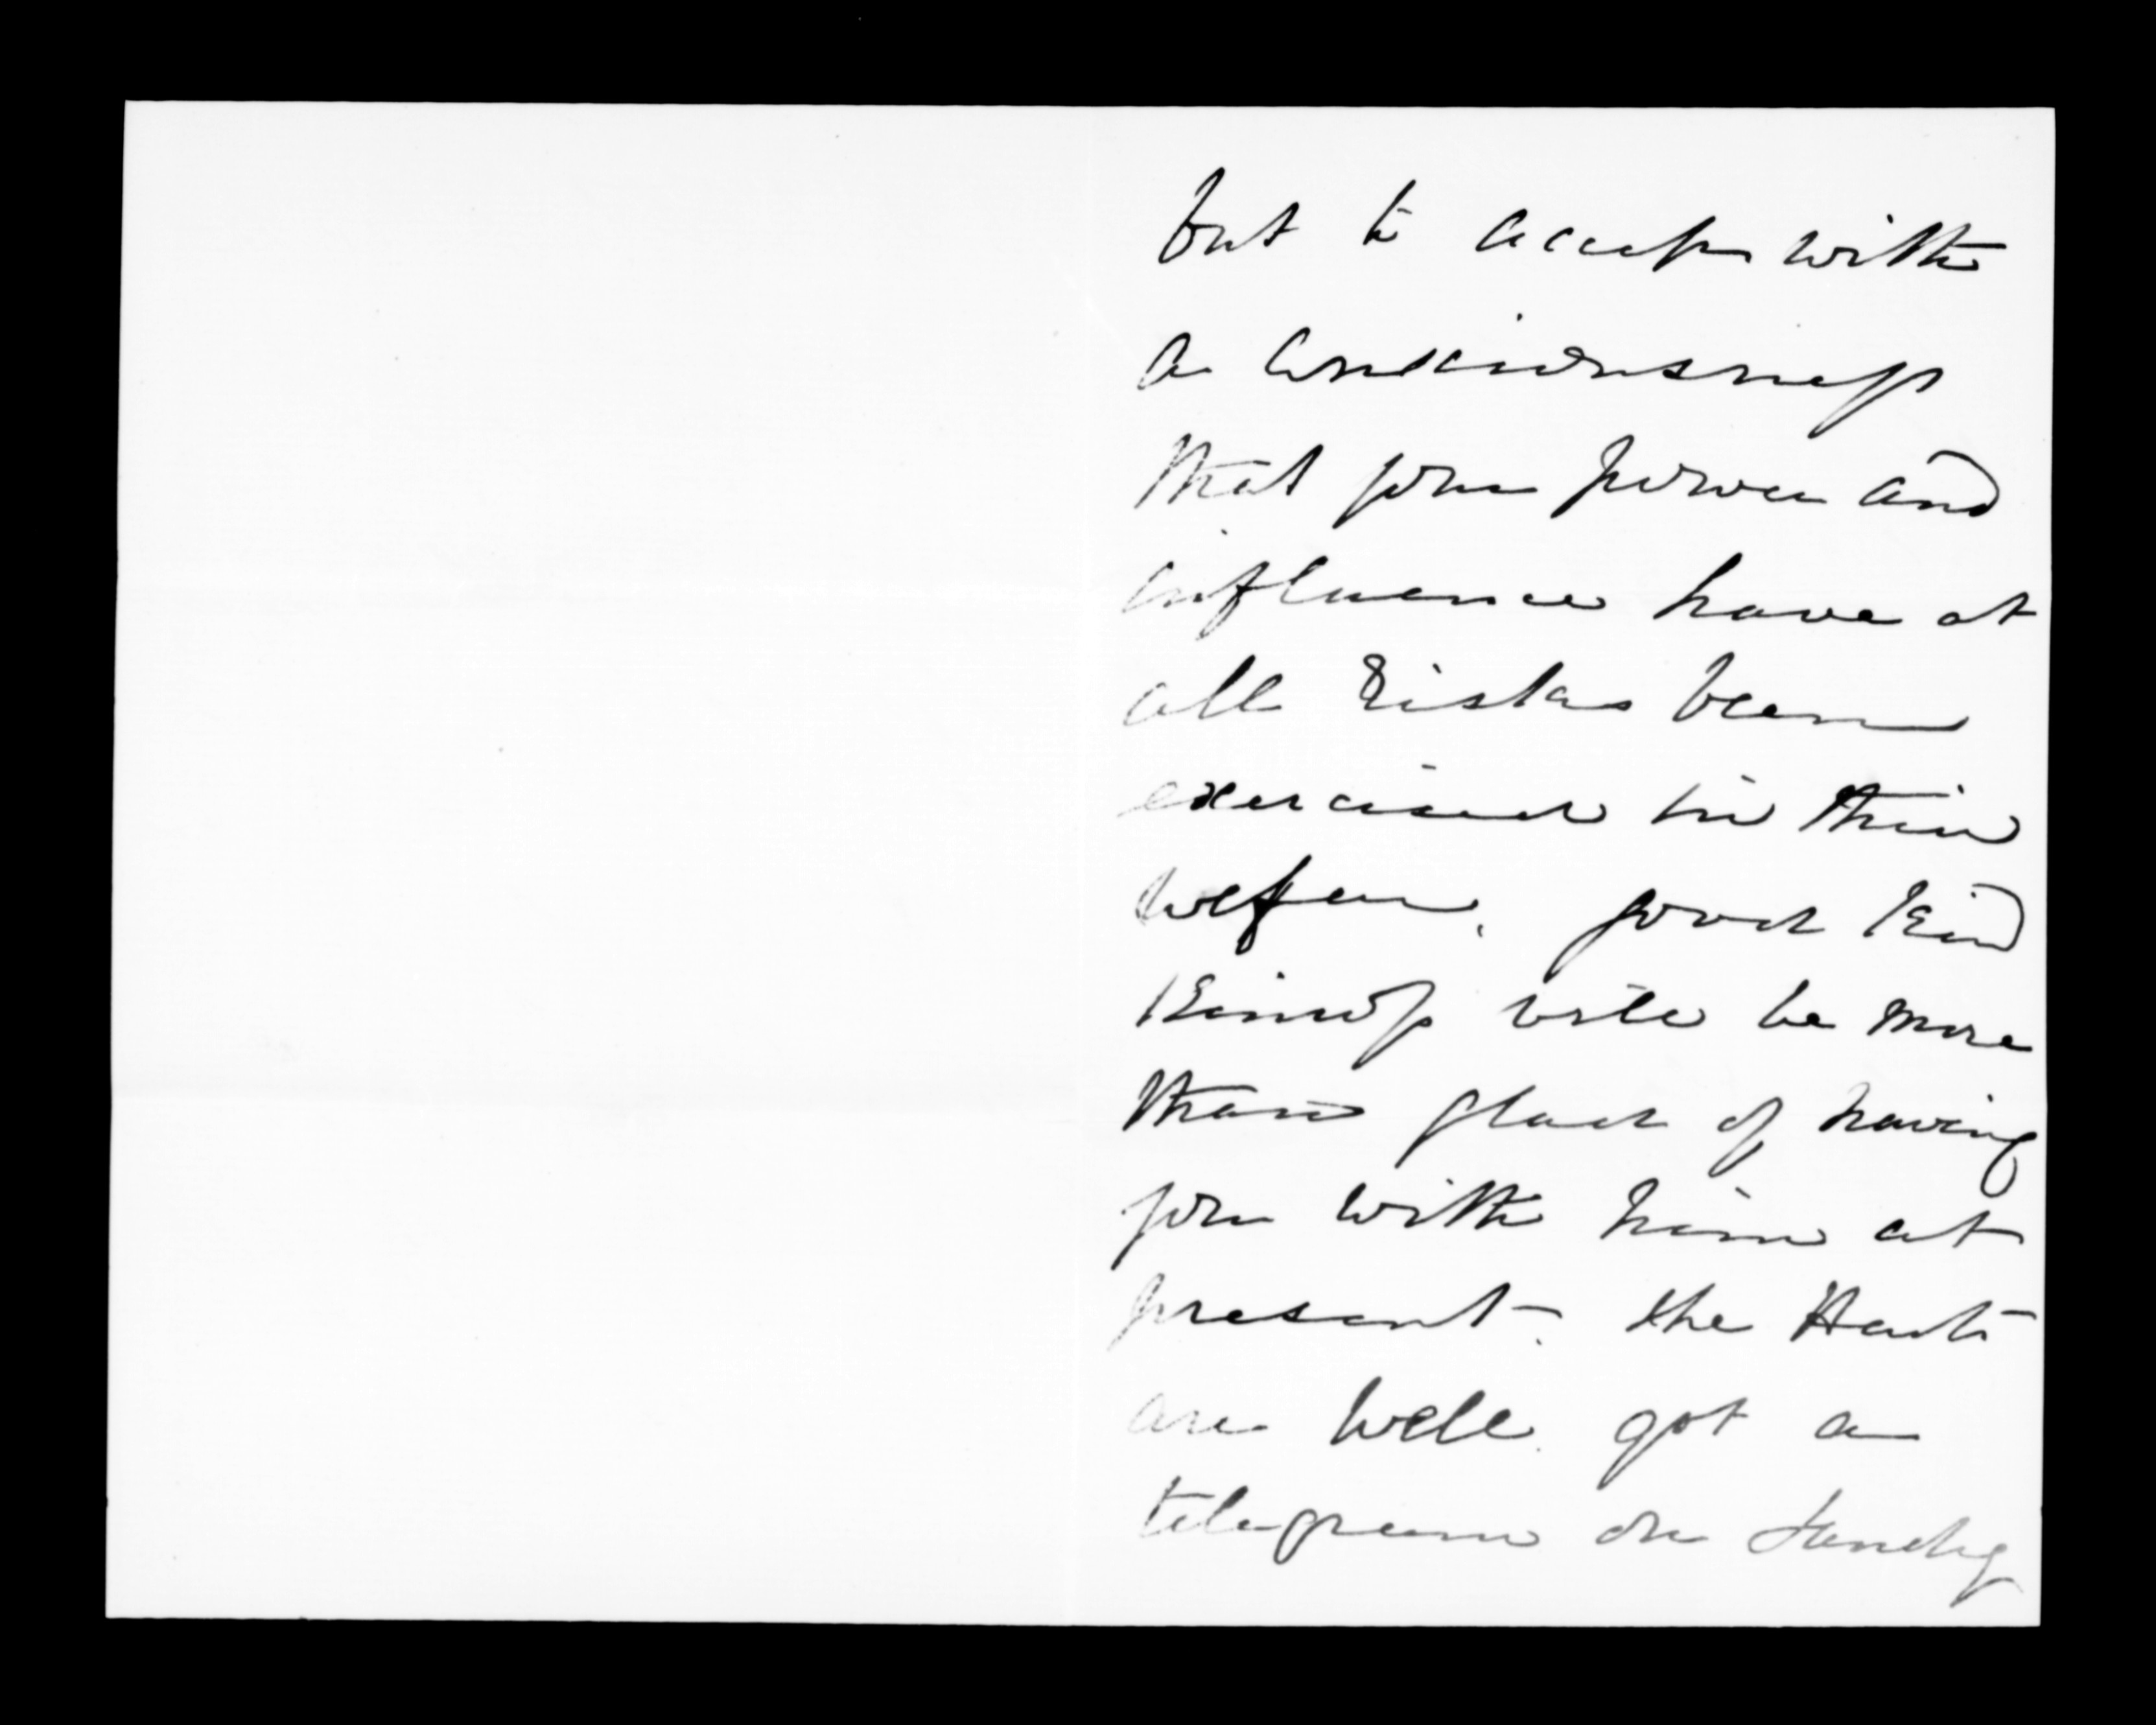 but to accept with
a consciousness
that your power and
influence have at
all risks been
exercised in their
welfare. good kind
Bishop will be more
than glad of having
you with him at
present. the Harts
are well. got a
telegram on Sunday